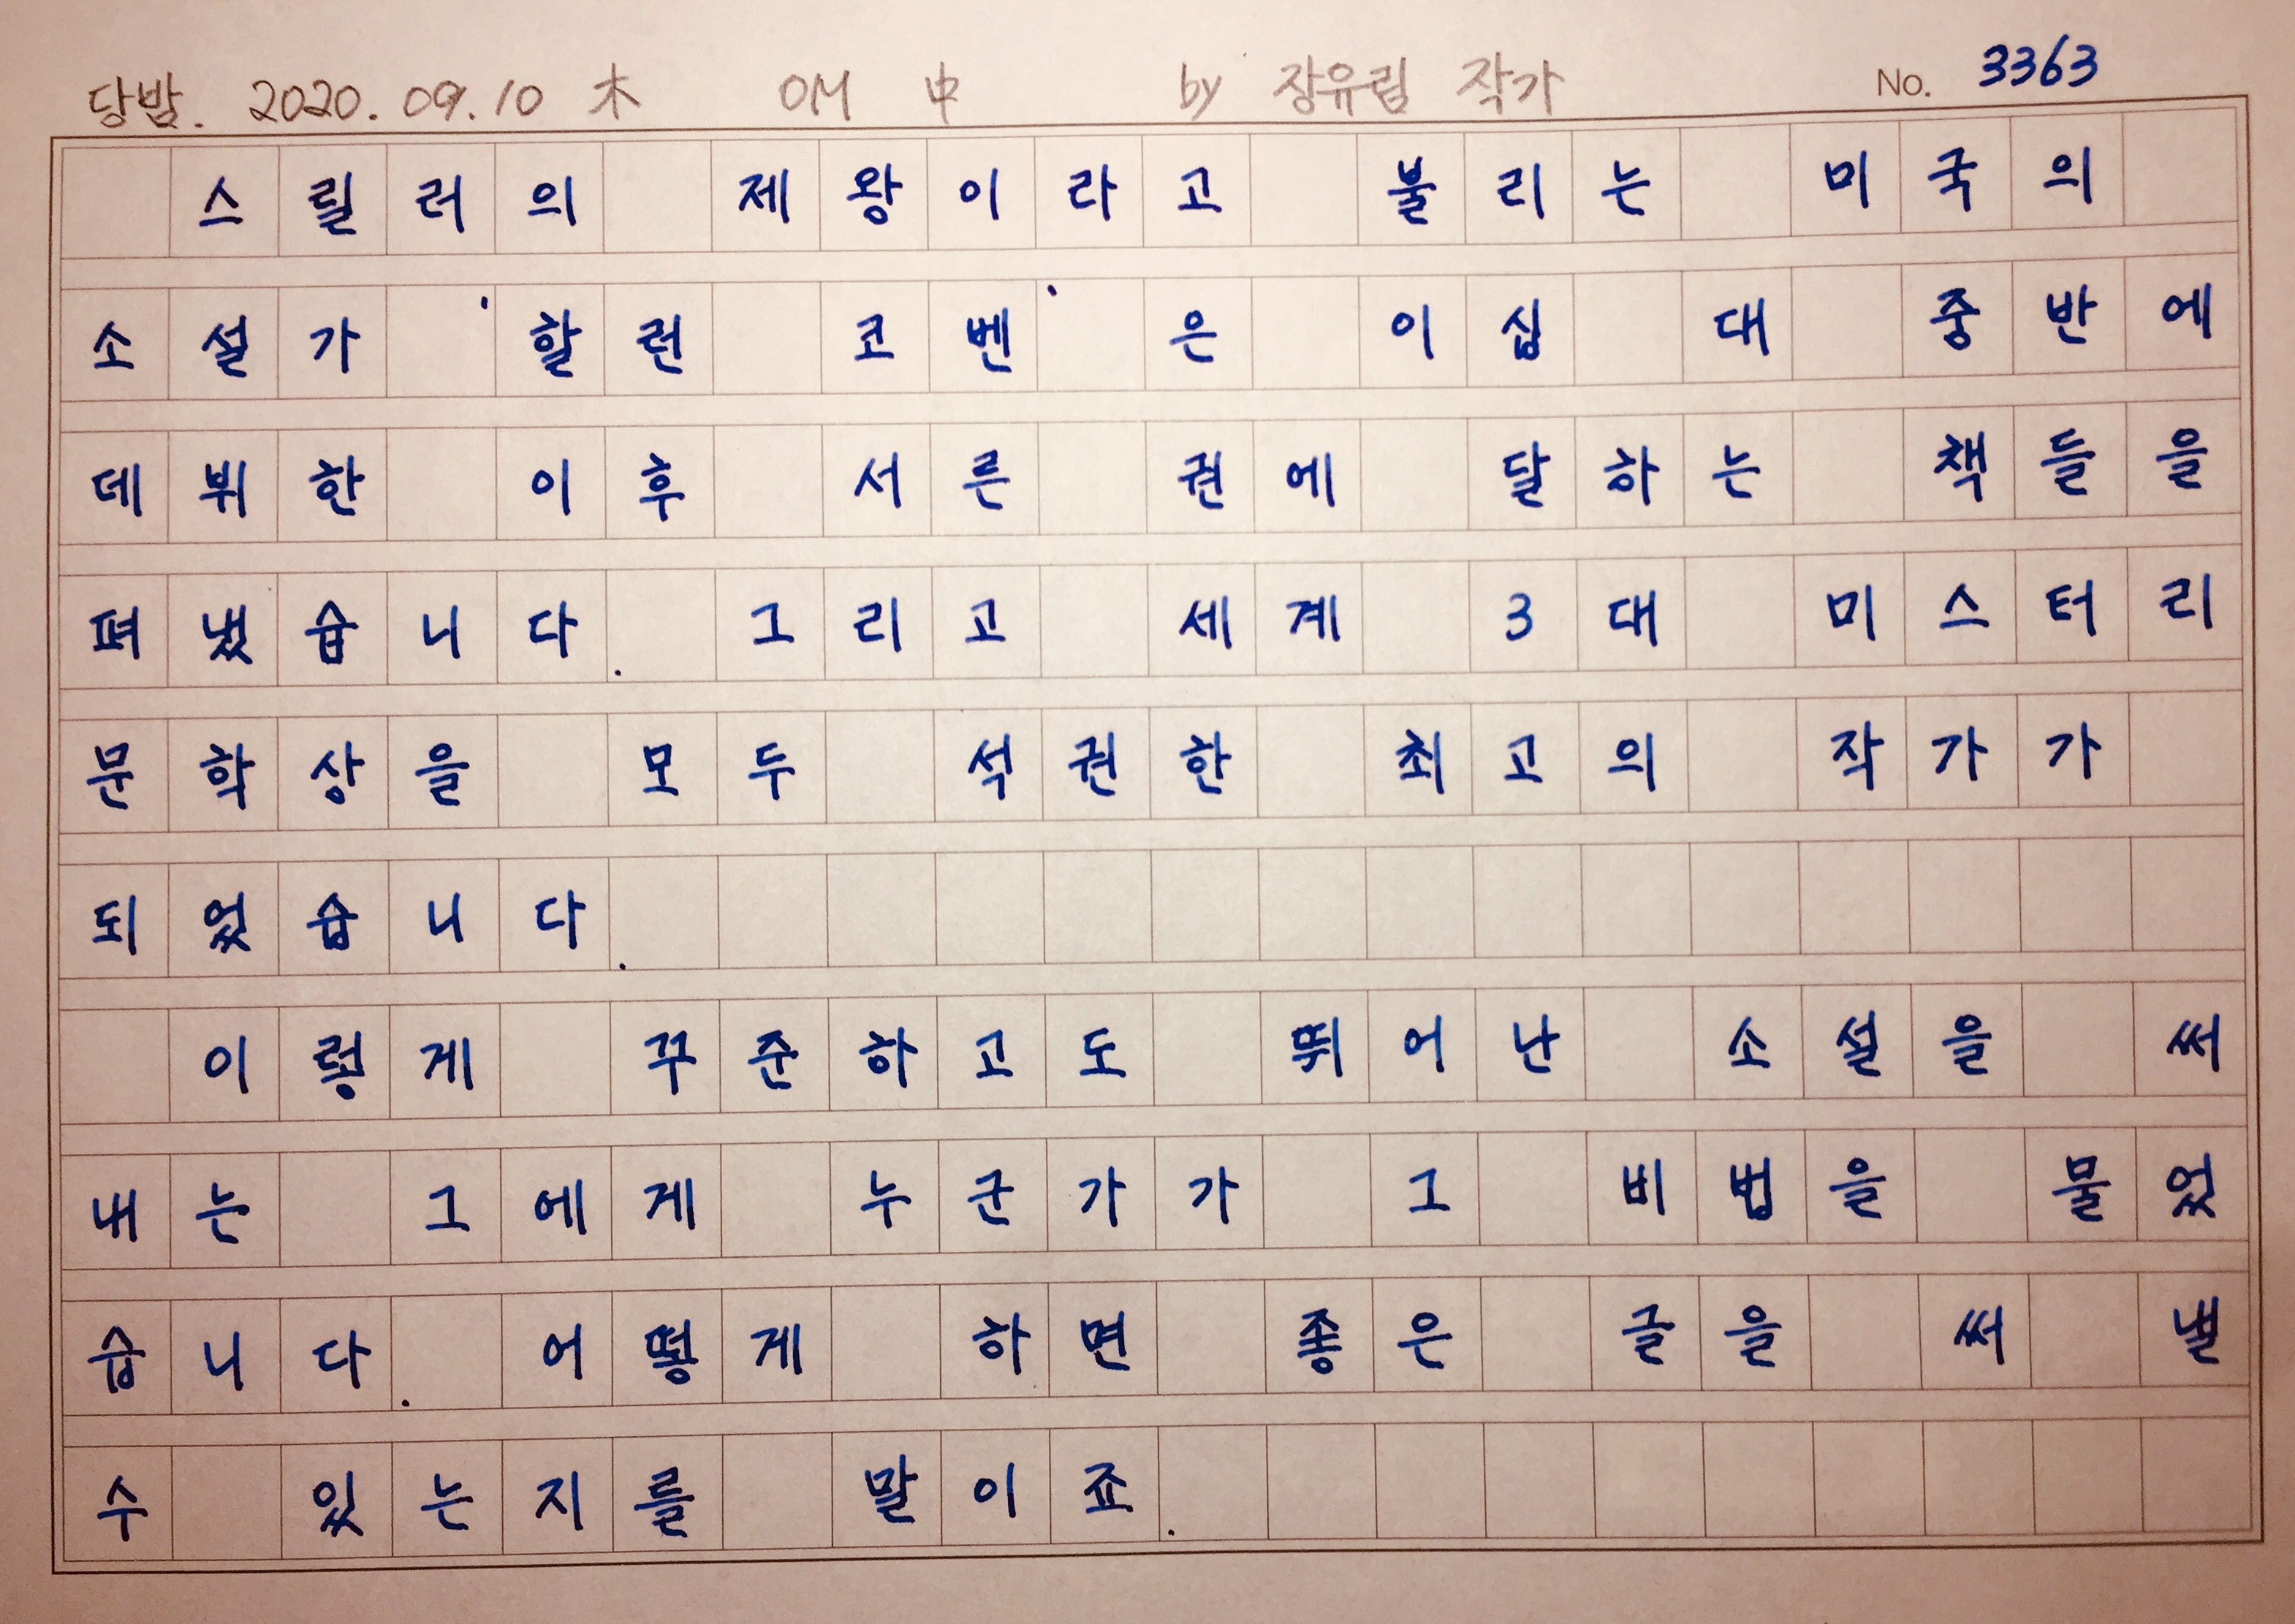 당밤. 2020. 09. 10 木 OM 中 by 장유림 작가 No. 3363
스릴러의 제왕이라고 불리는 미국의
소설가 '할런 코벤'은 이십 대 중반에
데뷔한 이후 서른 권에 달하는 책들을
펴냈습니다. 그리고 세계 3대 미스터리
문학상을 모두 석권한 최고의 작가가
되었습니다.
이렇게 꾸준하고도 뛰어난 소설을 써
내는 그에게 누군가가 그 비법을 물었
습니다. 어떻게 하면 좋은 글을 써 낼
수 있는지를 말이죠.